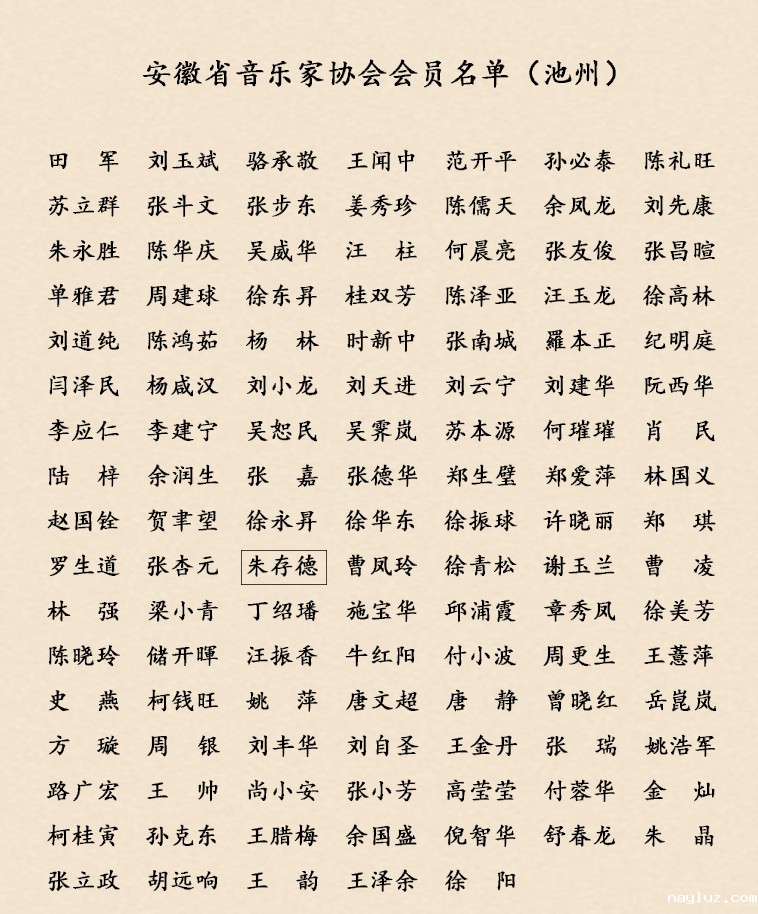 安徽省音乐家协会会员名单（池州）
田 军 刘玉斌 骆承敬 王闻中 范开平 孙必泰 陈礼旺
苏立群 张斗文 张步东 姜秀珍 陈儒天 余凤龙 刘先康
朱永胜 陈华庆 吴威华 汪 柱 何晨亮 张友俊 张昌暄
单雅君 周建球 徐东昇 桂双芳 陈泽亚 汪玉龙 徐高林
刘道纯 陈鸿茹 杨 林 时新中 张南城 羅本正 纪明庭
闫泽民 杨戚汉 刘小龙 刘天进 刘云宁 刘建华 阮西华
李应仁 李建宁 吴恕民 吴霁岚 苏本源 何璀璀 肖 民
陆 梓 余润生 张 嘉 张德华 郑生璧 郑爱萍 林国义
赵国铨 贺聿望 徐永昇 徐华东 徐振球 许晓丽 郑 琪
罗生道 张杏元 朱存德 曹凤玲 徐青松 谢玉兰 曹 凌
林 强 梁小青 丁绍璠 施宝华 邱浦霞 章秀凤 徐美芳
陈晓玲 储开暉 汪振香 牛红阳 付小波 周更生 王薏萍
史 燕 柯钱旺 姚 萍 唐文超 唐 静 曾晓红 岳崑岚
方 璇 周 银 刘丰华 刘自圣 王金丹 张 瑞 姚浩军
路广宏 王 帅 尚小安 张小芳 高莹莹 付蓉华 金 灿
柯桂寅 孙克东 王腊梅 余国盛 倪智华 舒春龙 朱 晶
张立政 胡远响 王 韵 王泽余 徐 阳
nayluz.com